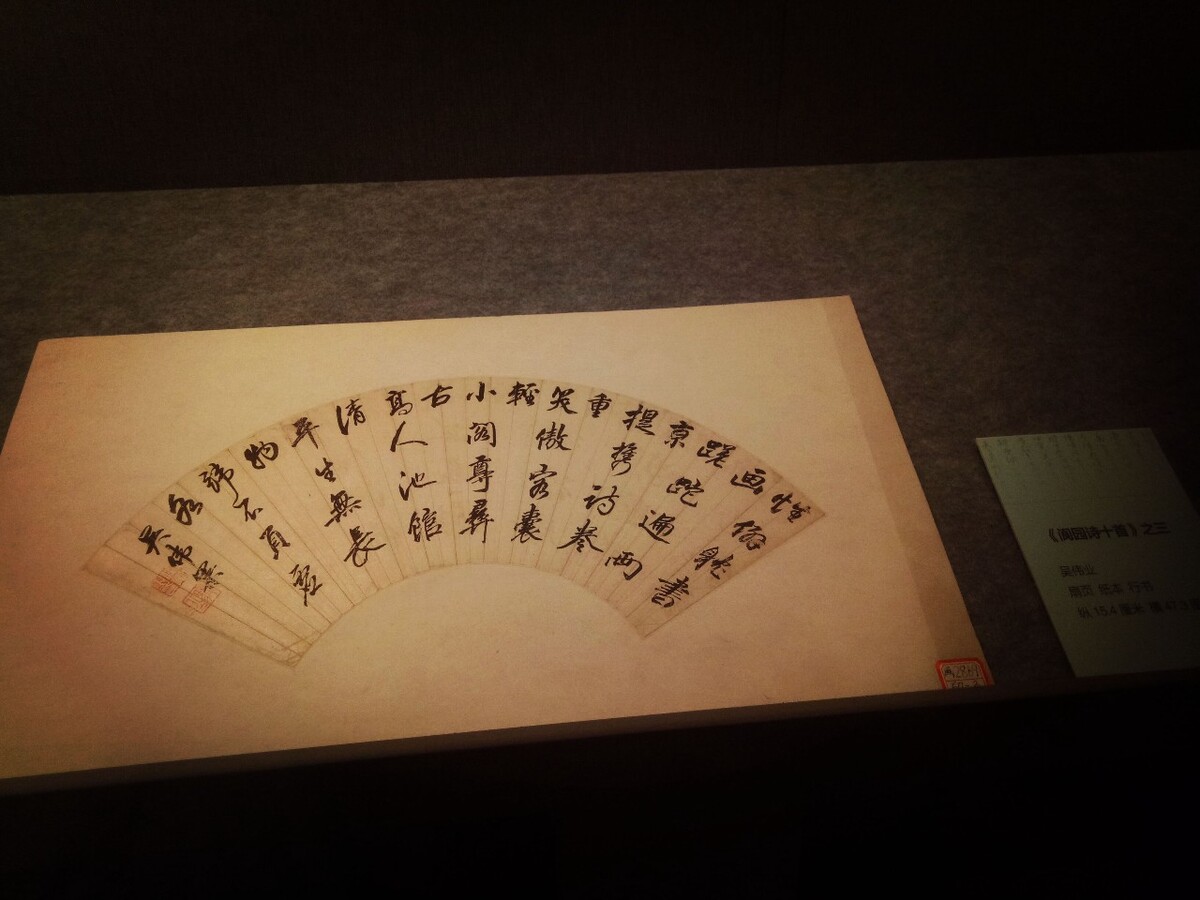 性僻躭書
画
蹉跎遍兩
京
提携詩卷
重
笑傲客囊
輕
小閣尊彝
古
高人池館
清
平生無長
物
不負虛
名
吳偉業
《阆园诗十首》之三
吴伟业
扇页 纸本 行书
纵 15.4 厘米 横 47.3